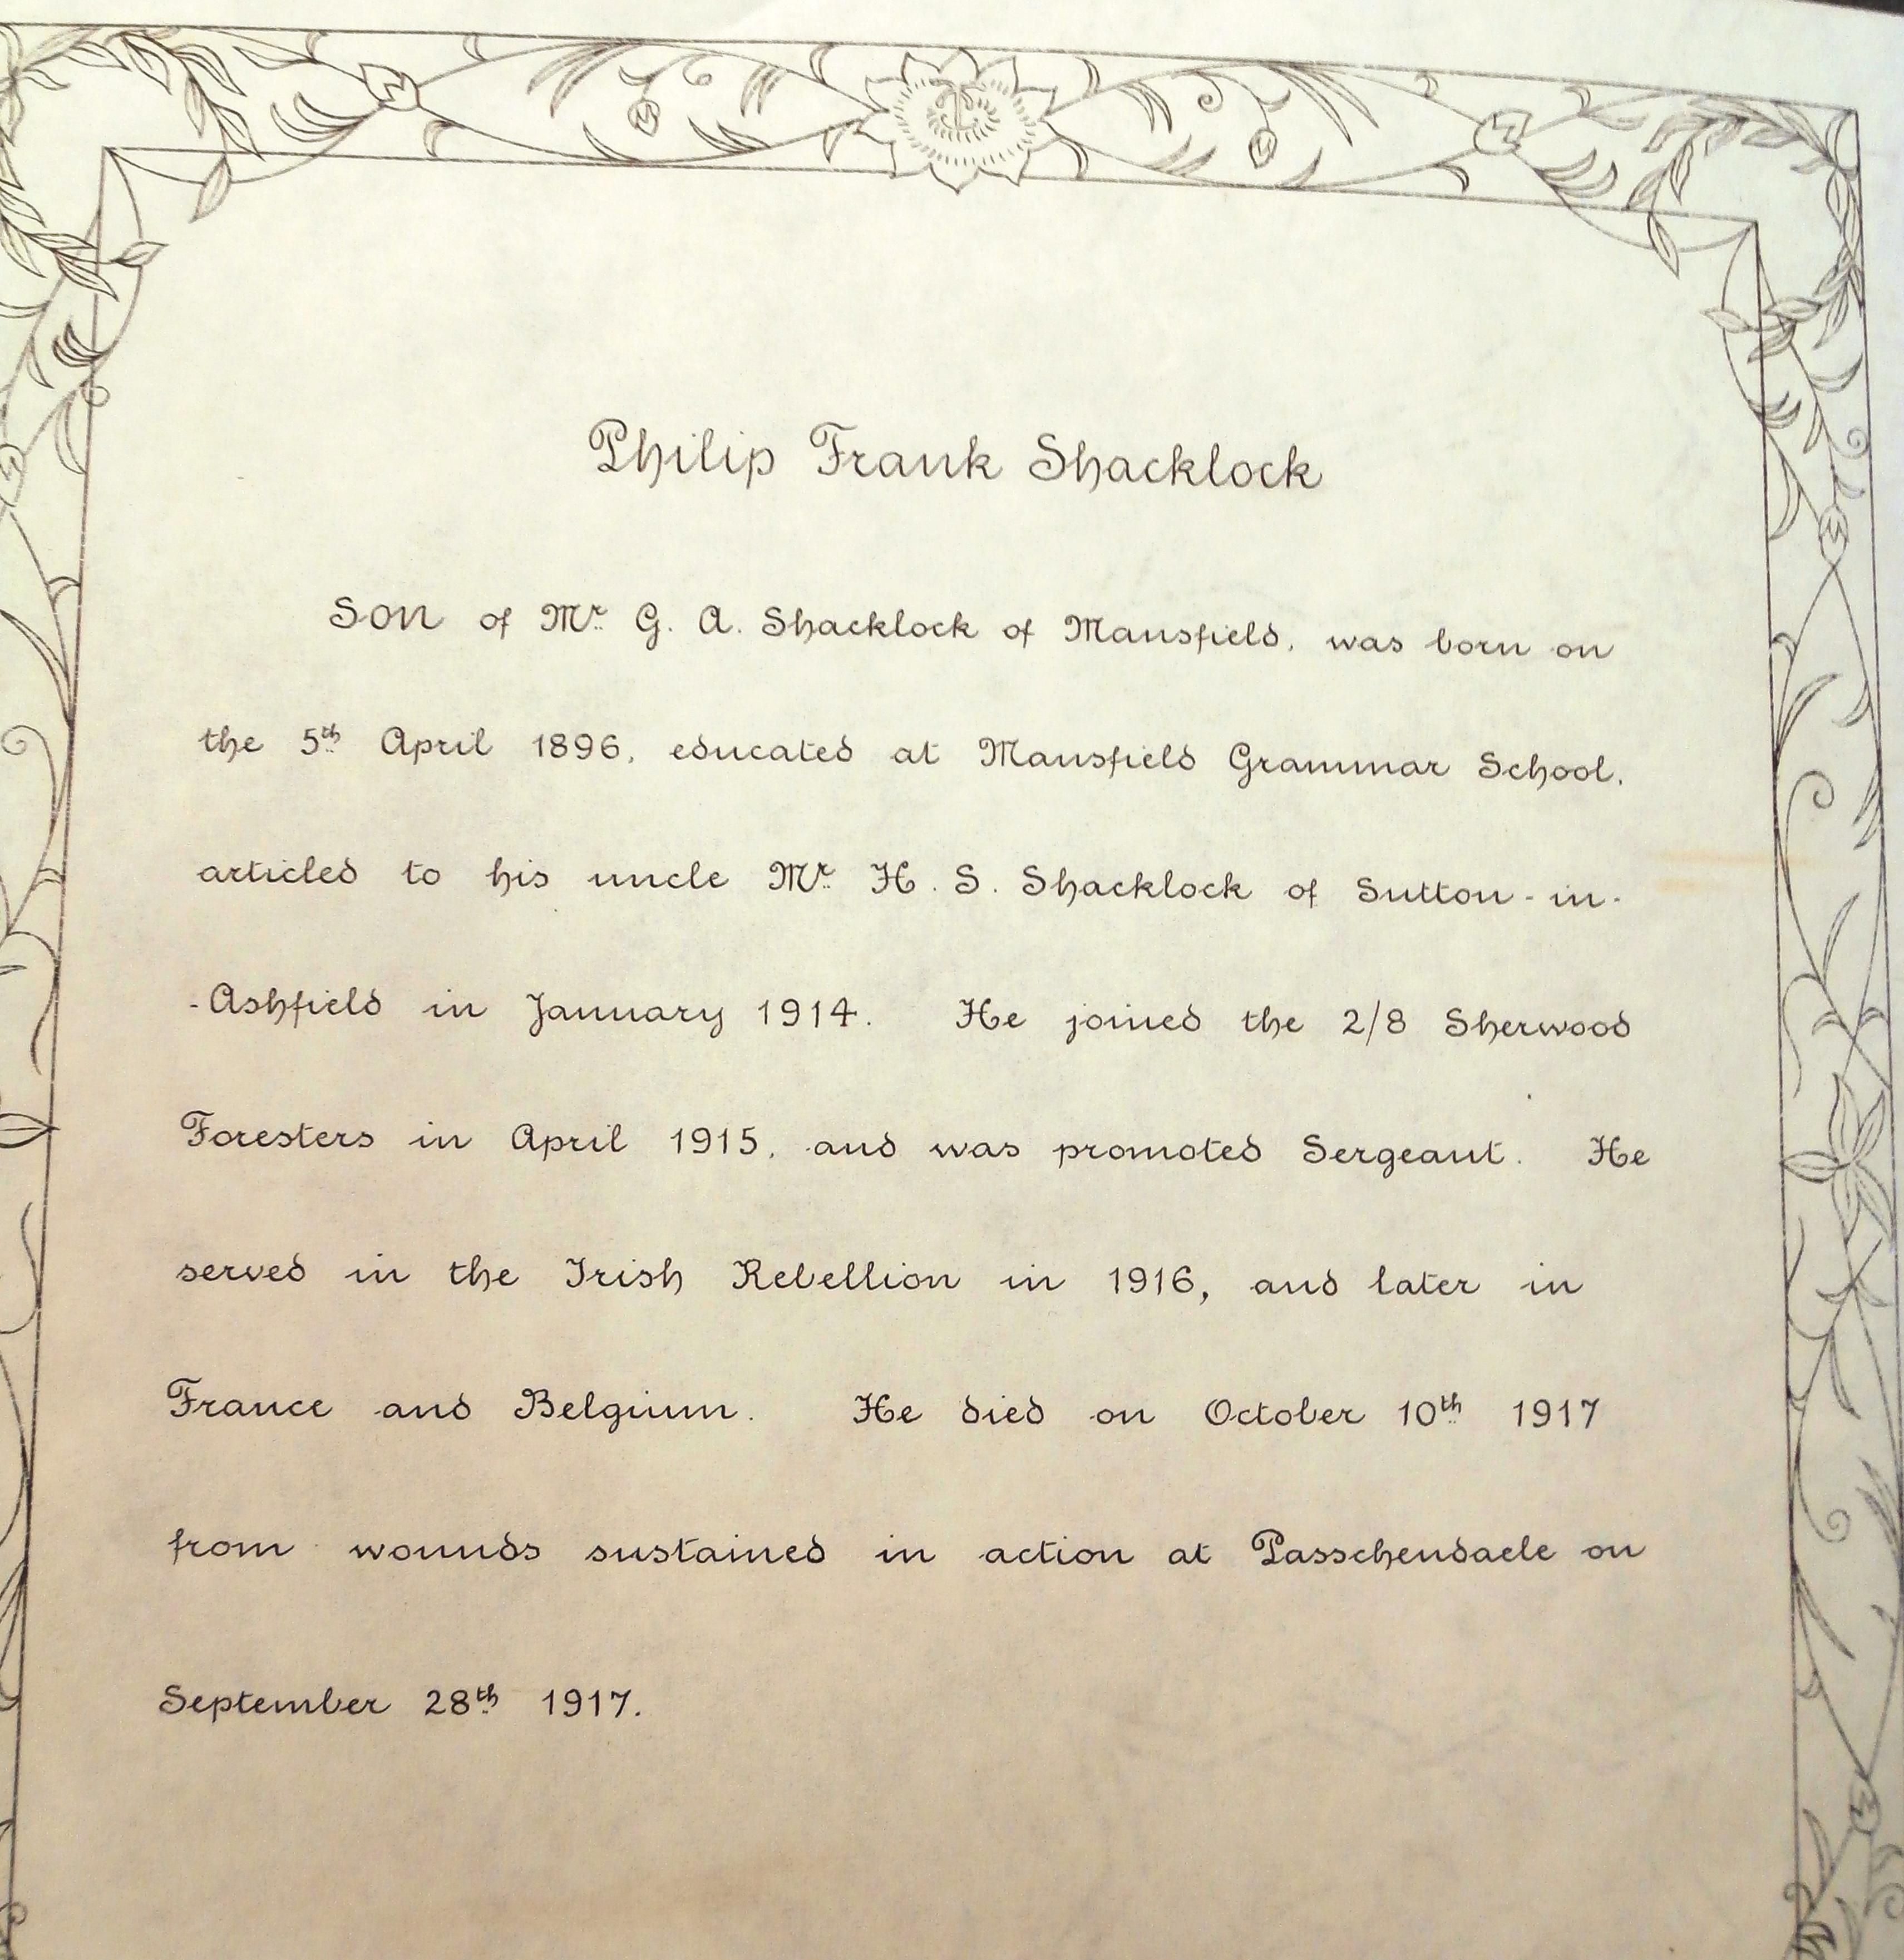 Philip Frank Shacklock
Son of Mr. G. A. Shacklock of Mansfield, was born on
the 5th April 1896, educated at Mansfield Grammar School,
articled to his uncle Mr. H. S. Shacklock of Sutton-in-
-Ashfield in January 1914. He joined the 2/8 Sherwood
Foresters in April 1915, and was promoted Sergeant. He
served in the Irish Rebellion in 1916, and later in
France and Belgium. He died on October 10th 1917
from wounds sustained in action at Passchendaele on
September 28th 1917.